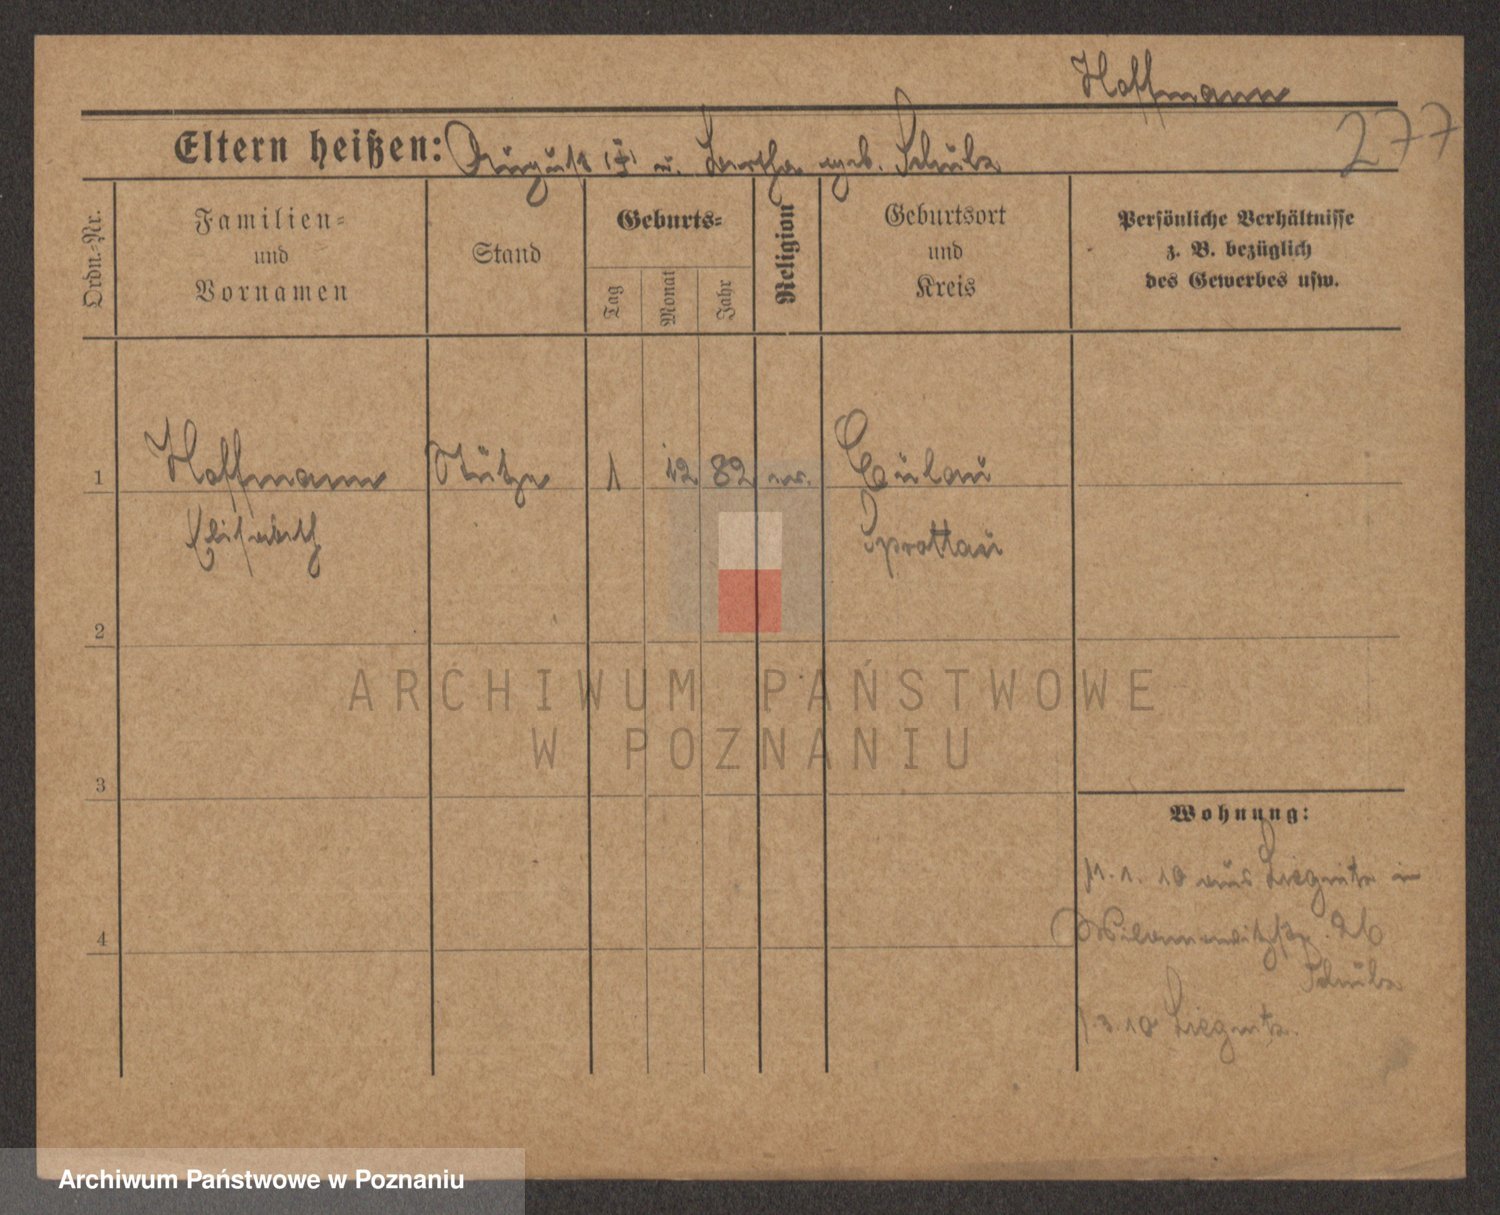 Hoffmann
277
Eltern heißen: August (†) u. Bertha geb. Schulz
Ordn.-Nr.
Familien-
und
Vornamen
Stand
Geburts-
Tag
Monat
Jahr
Religion
Geburtsort
und
Kreis
Persönliche Verhältnisse
z. B. bezüglich
des Gewerbes usw.
1 Hoffmann Stütze 1 12 82 ev. Eulau
Elisabeth Sprottau
2
3
4
ARCHIWUM PAŃSTWOWE
W POZNANIU
Wohnung:
1. 10 aus Liegnitz in
26
Schulz
3. 10 Liegnitz.
Archiwum Państwowe w Poznaniu